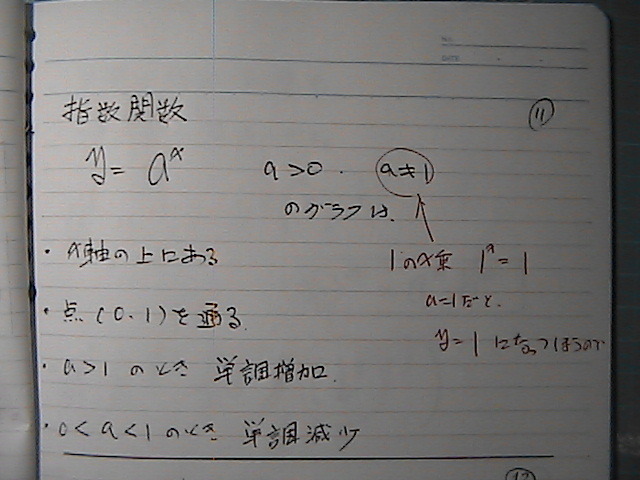 NO.
DATE
指数関数
⑪
y = a^x
a>0. a≠1
のグラフは、
・x軸の上にある
1のx乗 1^x = 1
・点(0.1)を通る
a=1だと、
y=1になっつまうので
・a>1のとき 単調増加.
・0<a<1のとき 単調減少
⑫